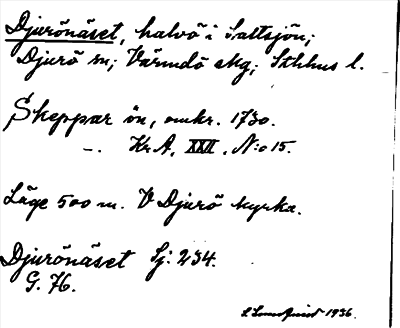 Djurönäset, halvö i Saltsjön;
Djurö sn; Värmdö skg; Sthlms l.
Skeppar ön, omkr. 1730.
—. Kr.A. XXII. N:o 15.
Läge 500 m. V Djurö kyrka.
Djurönäset Sj: 234.
G. 76.
1936.